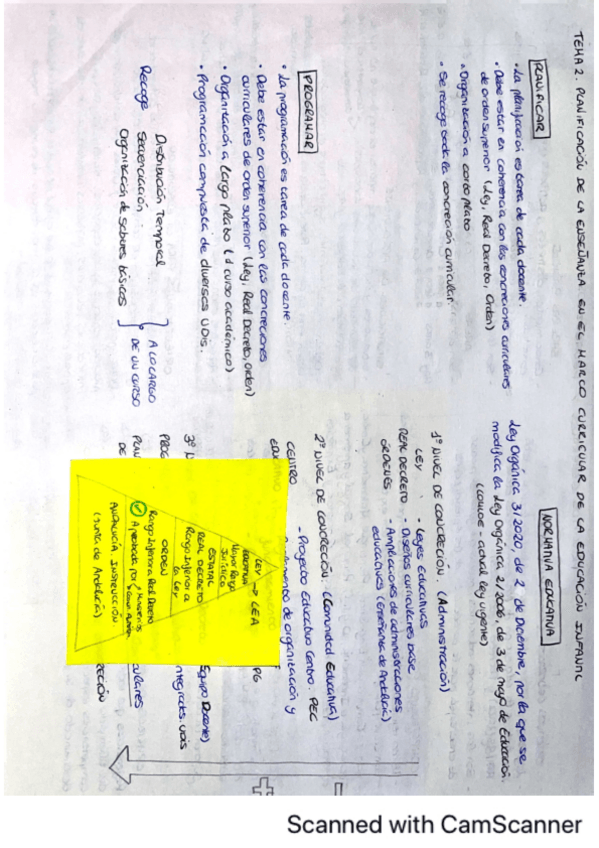 TEMA 2. PLANIFICACIÓN DE LA ENSEÑANZA EN EL MARCO CURRICULAR DE LA EDUCACIÓN INFANTIL
PLANIFICAR
• La planificación es tarea de cada docente.
• Debe estar en coherencia con las concreciones curriculares
de orden superior (Ley, Real Decreto, Orden)
• Organización a corto plazo
• Se recoge toda la concreción curricular.
PROGRAMAR
• La programación es tarea de cada docente.
• Debe estar en coherencia con las concreciones
curriculares de orden superior (Ley, Real Decreto, orden)
• Organización a largo plazo (1 curso académico)
• Programación compuesta de diversas UDIs.
Recoge
Distribución Temporal
Secuenciación
Organización de saberes básicos
A LO LARGO
DE UN CURSO
NORMATIVA EDUCATIVA
Ley Orgánica 3/2020, de 2 de Diciembre, por la que se
modifica la Ley Orgánica 2/2006, de 3 de mayo de Educación.
(LOMLOE - actual ley vigente)
1º NIVEL DE CONCRECIÓN. (Administración)
LEY - Leyes Educativas
REAL DECRETO - Diseños curriculares base
ÓRDENES - Ampliaciones de administraciones
educativas (Enseñanza de Andalucía)
2º NIVEL DE CONCRECIÓN. (Comunidad Educativa)
CENTRO - Proyecto Educativo Centro. PEC
de organización y
3º
Equipo Docente)
Integradas. UDIS
LEY → LEA
EDUCATIVA
Mayor Rango
Jurídico
ESTATAL
REAL DECRETO
Rango Inferior a
la Ley
ORDEN
Rango Inferior a Real Decreto
Aprobada por
ANDALUCÍA, INSTRUCCIÓN.
(Junta de Andalucía)
−
+
Scanned with CamScanner